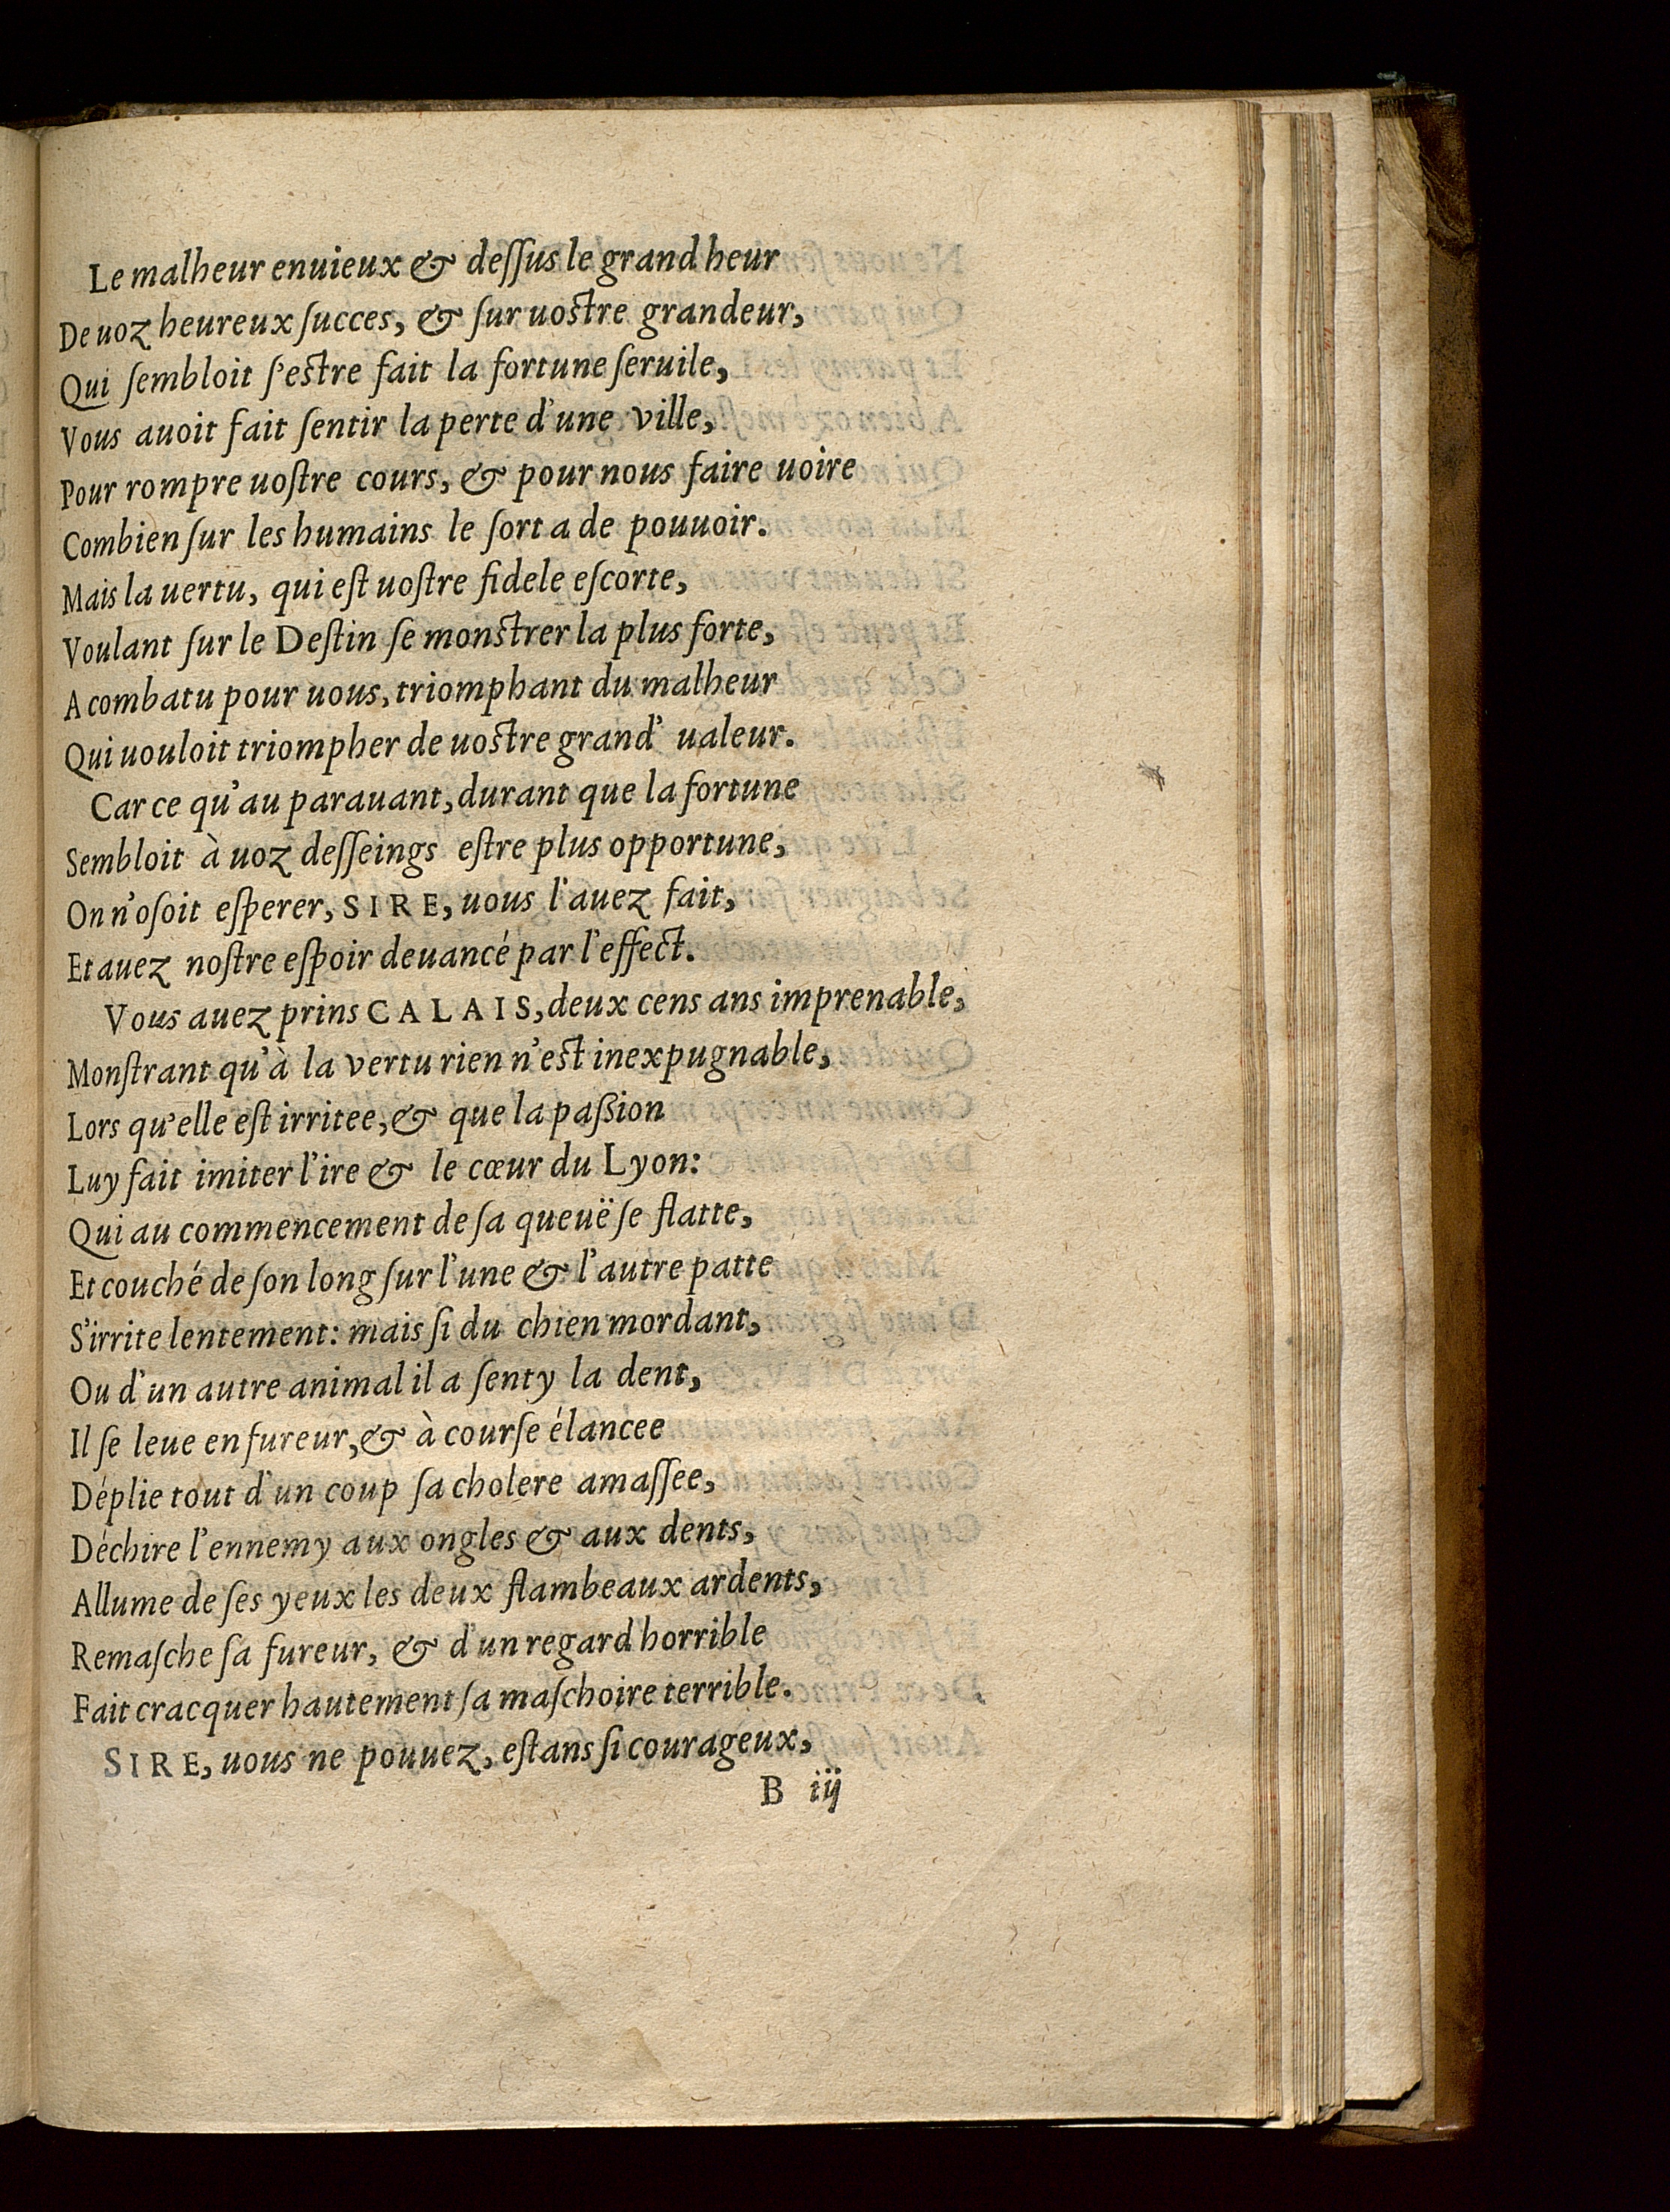 Le malheur enuieux & deſſus le grand heur
De uoz heureux ſucces, & ſur uoſtre grandeur,
Qui ſembloit ſ'eſtre fait la fortune ſeruile,
Vous auoit fait ſentir la perte d'une ville,
Pour rompre uoſtre cours, & pour nous faire uoire
Combien ſur les humains le ſort a de pouuoir.
Mais la uertu, qui eſt uoſtre fidele eſcorte,
Voulant ſur le Deſtin ſe monſtrer la plus forte,
A combatu pour uous, triomphant du malheur
Qui uouloit triompher de uoſtre grand' ualeur.
Car ce qu'au parauant, durant que la fortune
Sembloit à uoz deſſeings eſtre plus opportune,
On n'oſoit eſperer, SIRE, uous l'auez fait,
Et auez noſtre eſpoir deuancé par l'effect.
Vous auez prins CALAIS, deux cens ans imprenable,
Monſtrant qu'à la vertu rien n'eſt inexpugnable,
Lors qu'elle eſt irritee, & que la paßion
Luy fait imiter l'ire & le cœur du Lyon:
Qui au commencement de ſa queuë ſe flatte,
Et couché de ſon long ſur l'une & l'autre patte
S'irrite lentement: mais ſi du chien mordant,
Ou d'un autre animal il a ſenty la dent,
Il ſe leue en fureur, & à courſe élancee
Déplie tout d'un coup ſa cholere amaſſee,
Déchire l'ennemy aux ongles & aux dents,
Allume de ſes yeux les deux flambeaux ardents,
Remaſche ſa fureur, & d'un regard horrible
Fait cracquer hautement ſa maſchoire terrible.
SIRE, uous ne pouuez, eſtans ſi courageux,
B iij